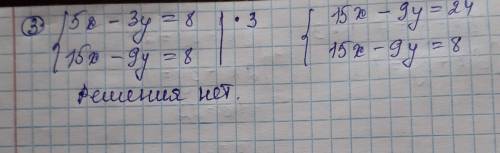 ③ { 5x - 3y = 8 | · 3 { 15x - 9y = 24
15x - 9y = 8 | 15x - 9y = 8
Решения нет.